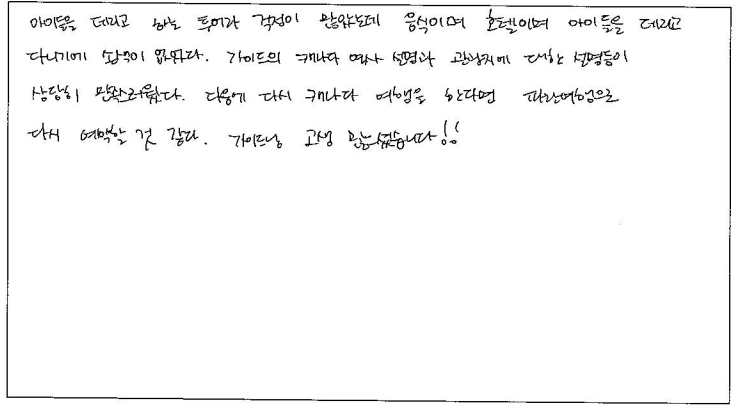 아이들을 데리고 하는 투어라 걱정이 많았는데 음식이며 호텔이며 아이들을 데리고
다니기에 부족이 없었다. 가이드의 캐나다 역사 설명과 관광지에 대한 설명등이
상당히 만족스러웠다. 다음에 다시 캐나다 여행을 한다면 파란여행으로
다시 예약할 것 같다. 가이드님 고생 많으셨습니다!!